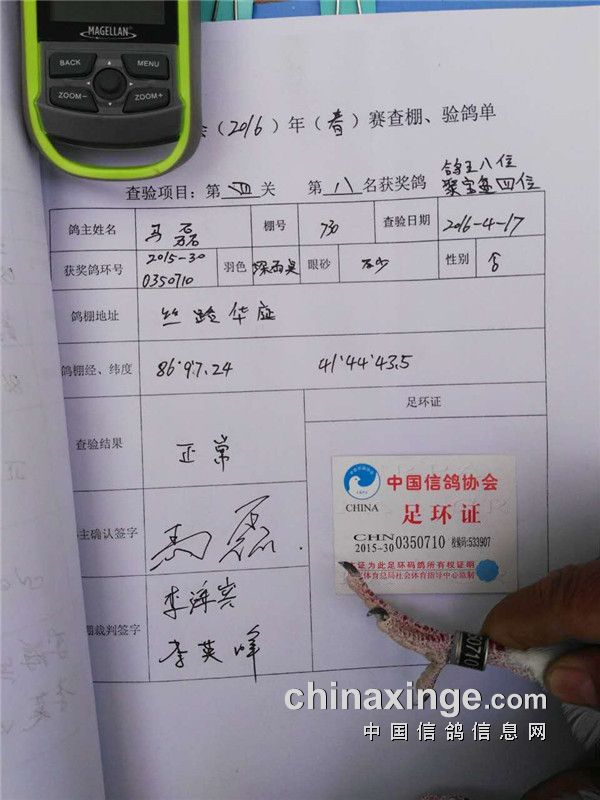 MAGELLAN
BACK
MENU
ZOOM−
ZOOM+
（2016）年（春）赛查棚、验鸽单
查验项目：第 四 关 第 八 名获奖鸽
鸽王八位
聚宝盆四位
鸽主姓名 马磊 棚号 730 查验日期 2016-4-17
获奖鸽环号 2015-30 0350710 羽色 深雨点 眼砂 性别
鸽棚地址 丝路华庭
鸽棚经、纬度 86°9'7.24 41°44'43.5
足环证
查验结果 正常
主确认签字 马磊
棚裁判签字 李海滨
李英峰
中国信鸽协会
CHINA
足环证
CHN
2015-30 0350710 校验码:533907
证为此足环码鸽所有权证明
体育总局社会体育指导中心监制
50710
chinaxinge.com
中国信鸽信息网